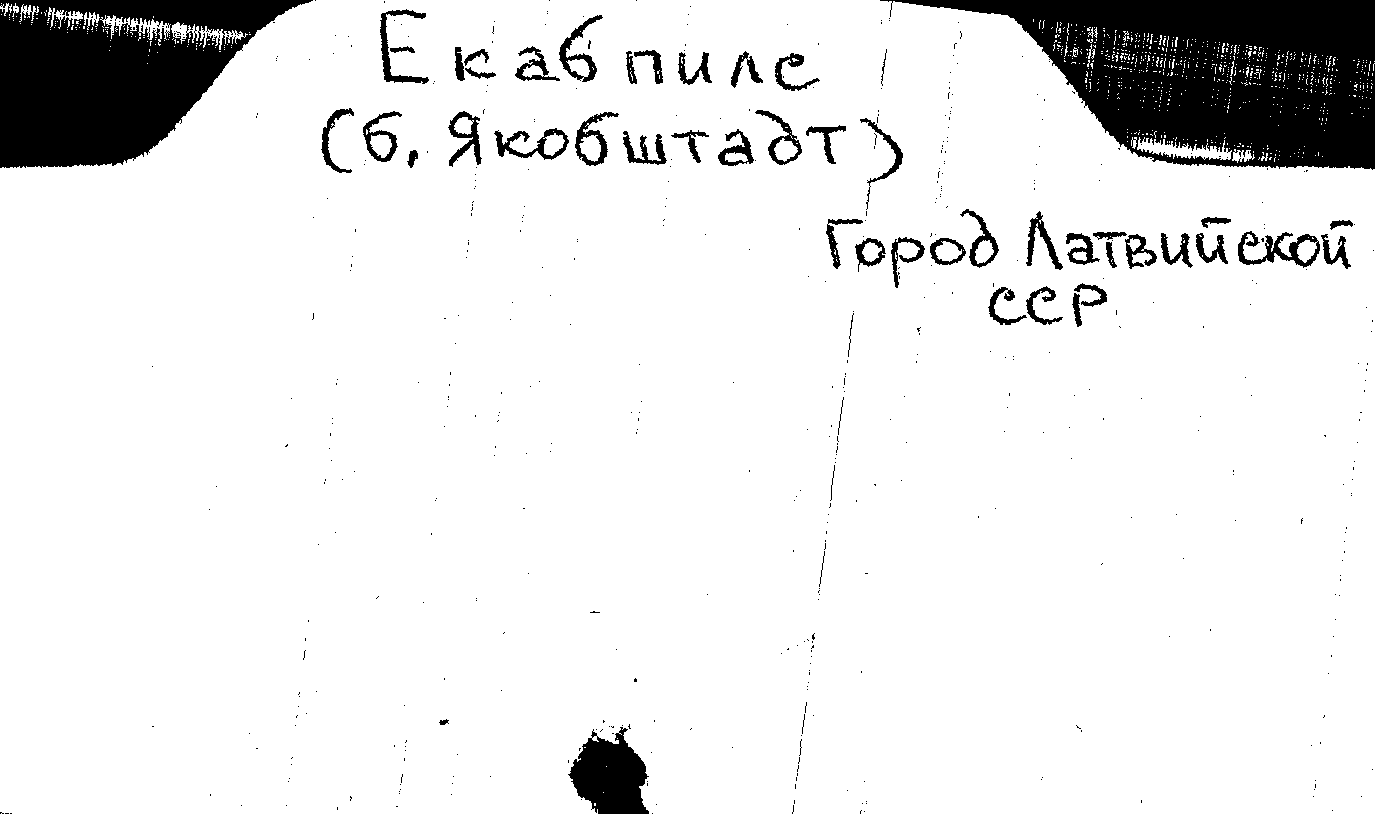 Екабпилс
(б. Якобштадт)
Город Латвийской
ССР